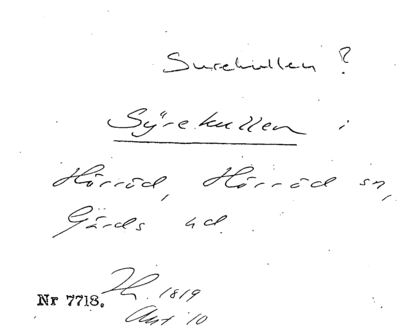 Surekullen?
Sÿrekullen i
Hörröd, Hörröd sn,
Gärds hd.
Nr 7718. 1819